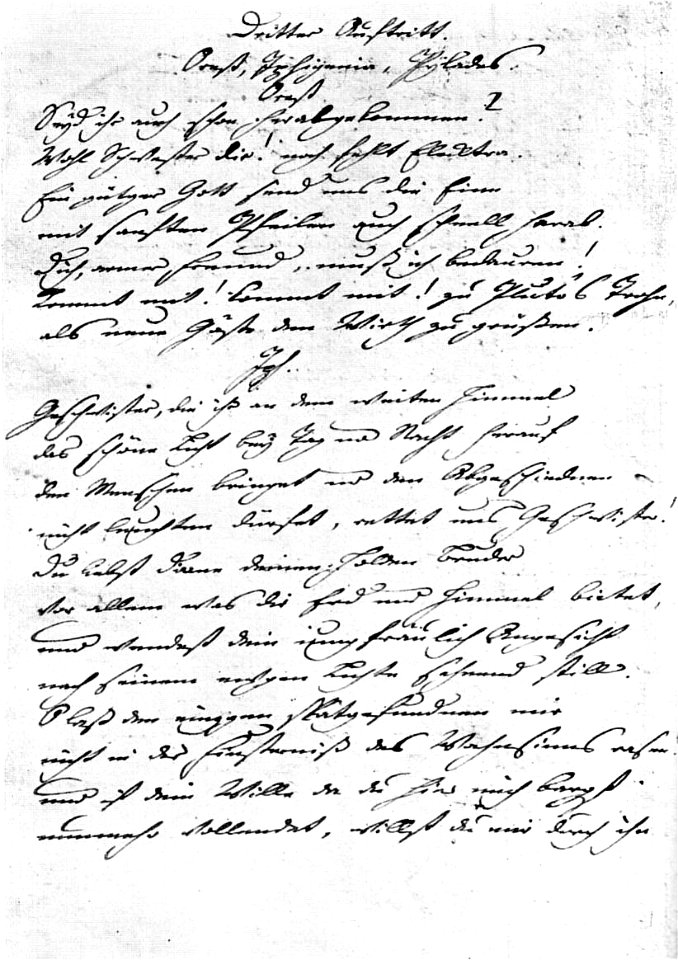 Dritter Auftritt.
Orest, Iphigenia, Pylades.
Orest
Seyd ihr auch schon herabgekommen?
Wohl Schwester dir! noch fehlt Elecktra.
Ein gütger Gott send uns die Eine
mit sanften Pfeilen auch schnell herab.
Dich, armer Freund, muß ich bedauren!
Kommt mit! kommt mit! zu Pluto's Trohn,
als neue Gäste den Wirth zu grüßen.
Iph.
Geschwister, die ihr an dem weiten Himmel
das schöne Licht bey Tag und Nacht herauf
den Menschen bringet und den Abgeschiednen
nicht leuchten dürfet, rettet uns Geschwister!
Du liebst Diane deinen holden Bruder
vor allem was dir Erd und Himmel bietet,
und wendest dein jungfräulich Angesicht
nach seinem ewgen Lichte sehnend still.
O laß den einzgen spätgefundnen mir
nicht in der Finsterniß des Wahnsinns rasen!
und ist dein Wille da du hier mich bargst
nunmehr vollendet, willst du mir durch ihn